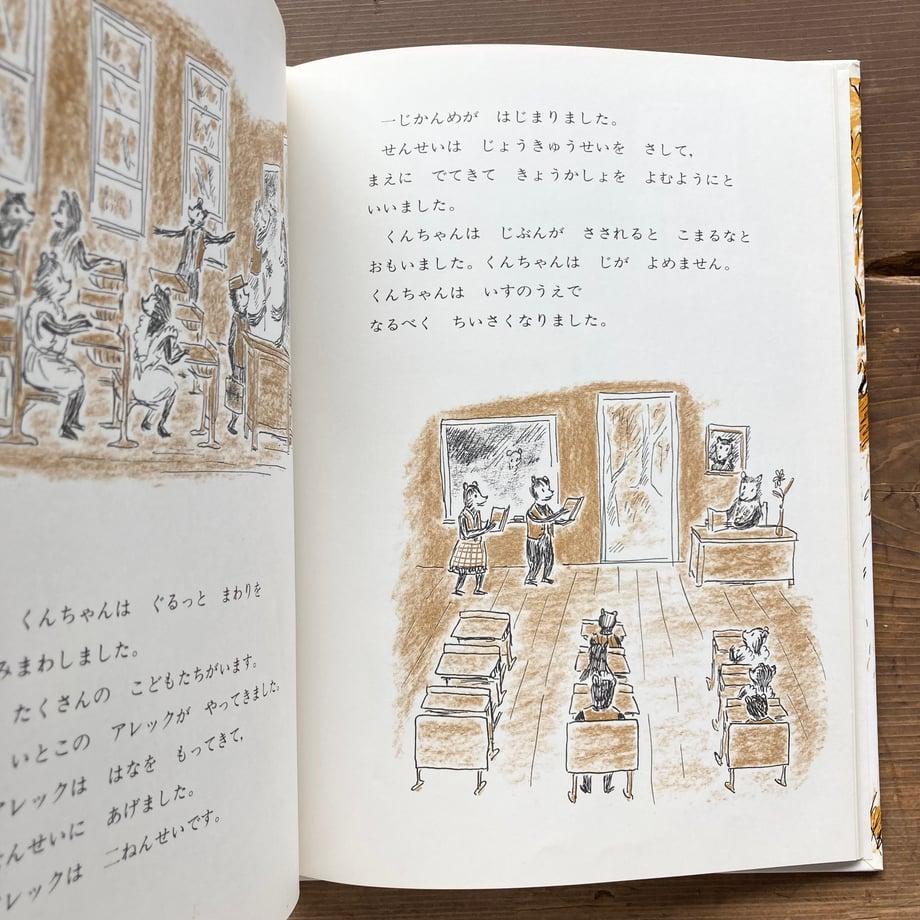 くんちゃんは　ぐるっと　まわりを
みまわしました。
たくさんの　こどもたちがいます。
いとこの　アレックが　やってきました。
アレックは　はなを　もってきて、
せんせいに　あげました。
アレックは　二ねんせいです。
一じかんめが　はじまりました。
せんせいは　じょうきゅうせいを　さして、
まえに　でてきて　きょうかしょを　よむようにと
いいました。
くんちゃんは　じぶんが　さされると　こまるなと
おもいました。くんちゃんは　じが　よめません。
くんちゃんは　いすのうえで
なるべく　ちいさくなりました。